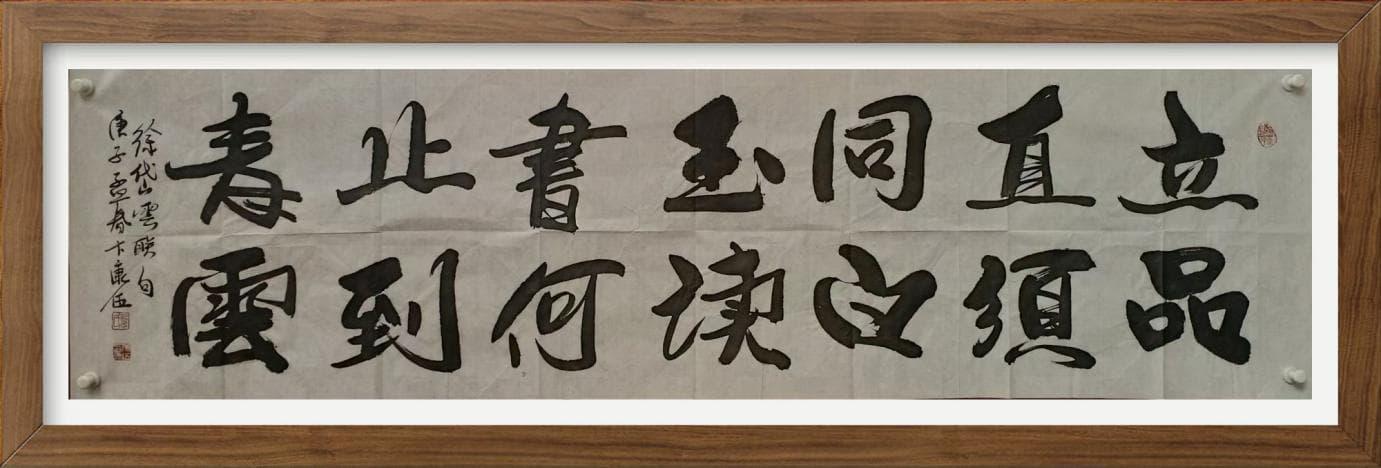 立品
直須
同白
玉读
書何
止到
青雲
徐岱雲联句
庚子孟春卞康